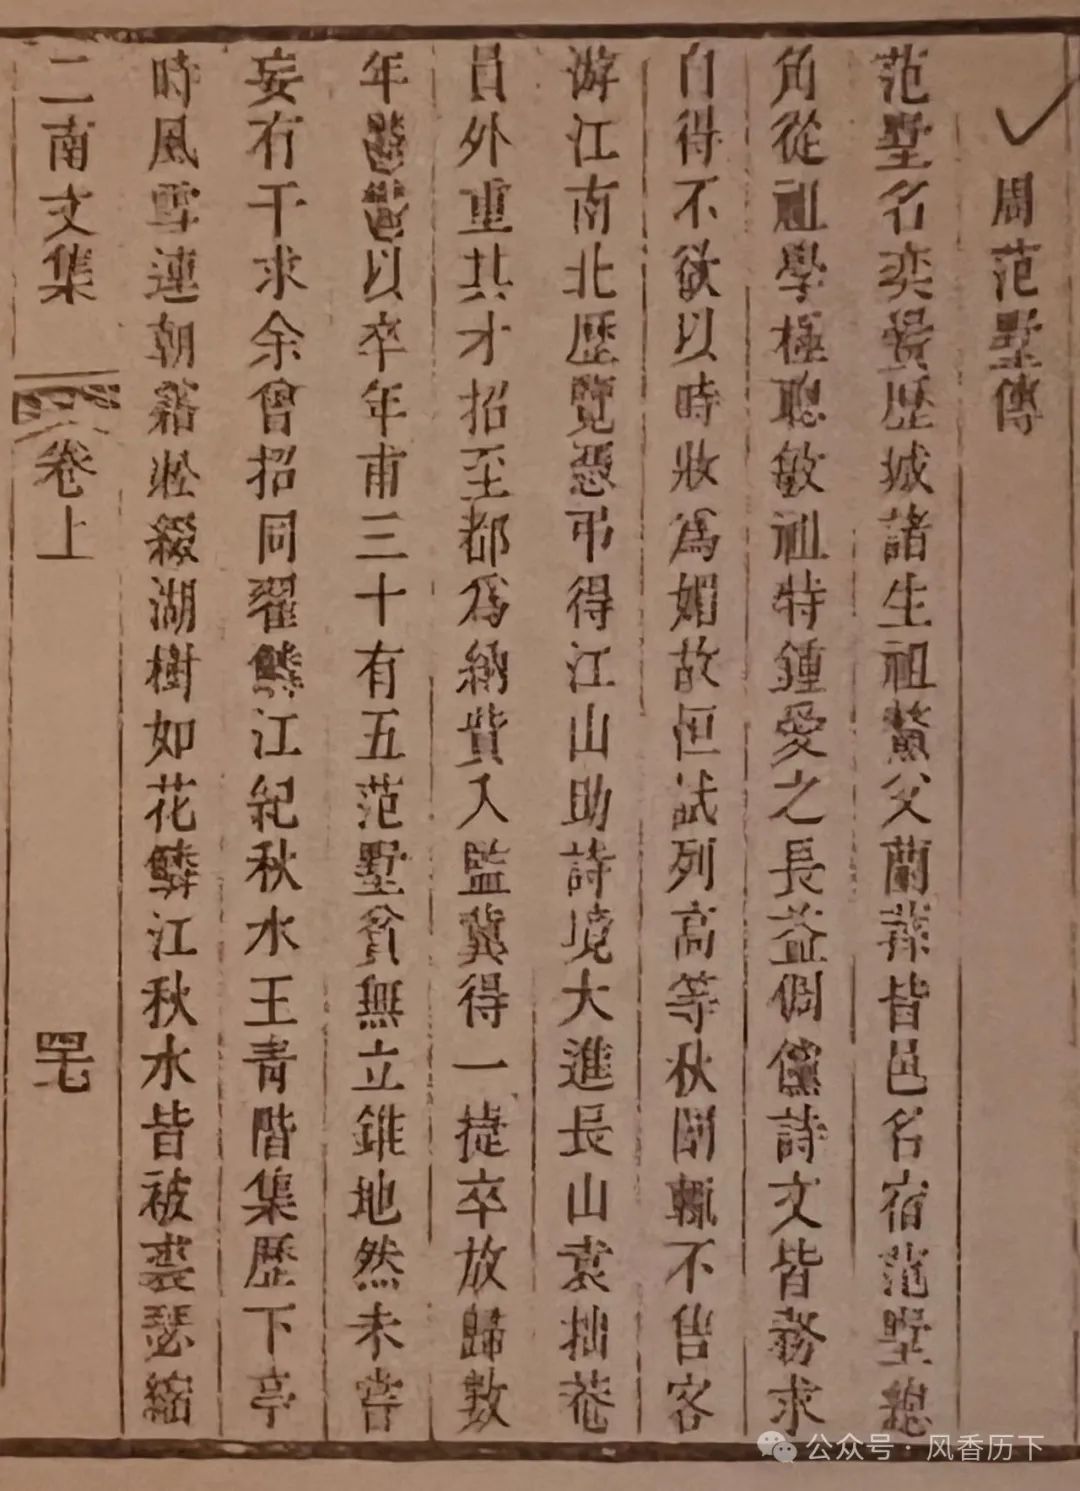 周范墅傳
范墅名奕黌歷城諸生祖鰲父蘭莽皆邑名宿范墅總
角從祖學極聰敏祖特鍾愛之長益倜儻詩文皆務求
自得不欲以時妝為媚故恒試列高等秋闈輒不售客
游江南北歷覽憑弔得江山助詩境大進長山袁拙菴
員外重其才招至都為納貲入監冀得一捷卒放歸數
年 以卒年甫三十有五范墅貧無立錐地然未嘗
妄有干求余曾招同翟鱗江紀秋水王青階集歷下亭
時風雪連朝霜淞綴湖樹如花鱗江秋水皆被裘瑟縮
二南文集 卷上 罕七
公众号·风香历下